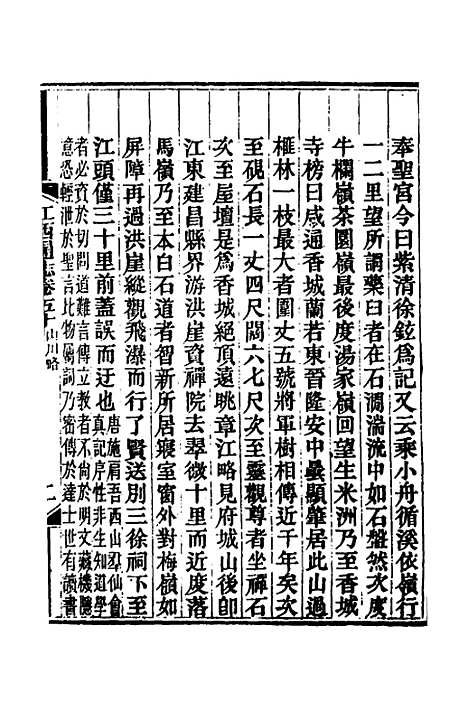 奉聖宮今曰紫清徐鉉爲記又云乘小舟循溪依嶺行
一二里望所謂藥臼者在石澗湍流中如石盤然次度
牛欄嶺茶園嶺最後度湯家嶺回望生米洲乃至香城
寺榜曰咸通香城蘭若東晉隆安中曇顯肇居此山過
榧林一枝最大者圍丈五號將軍樹相傳近千年矣次
至硯石長一丈四尺闊六七尺次至靈觀尊者坐禪石
次至屋壇是爲香城絕頂遠眺章江略見府城山後卽
江東建昌縣界游洪崖資禪院去翠微十里而近度落
馬嶺乃至本白石道者智新所居寢室窗外對梅嶺如
屏障再過洪崖縱觀飛瀑而行了賢送別三徐祠下至
江頭僅三十里前蓋誤而迂也唐施肩吾西山羣仙會
真記序性非生知道學
者必資於切問道難言傳立教者不尙於明文藏機隱
意恐輕泄於聖言比物屬詞乃密傳於達士世有讀書
江西通志卷五十 山川略 二